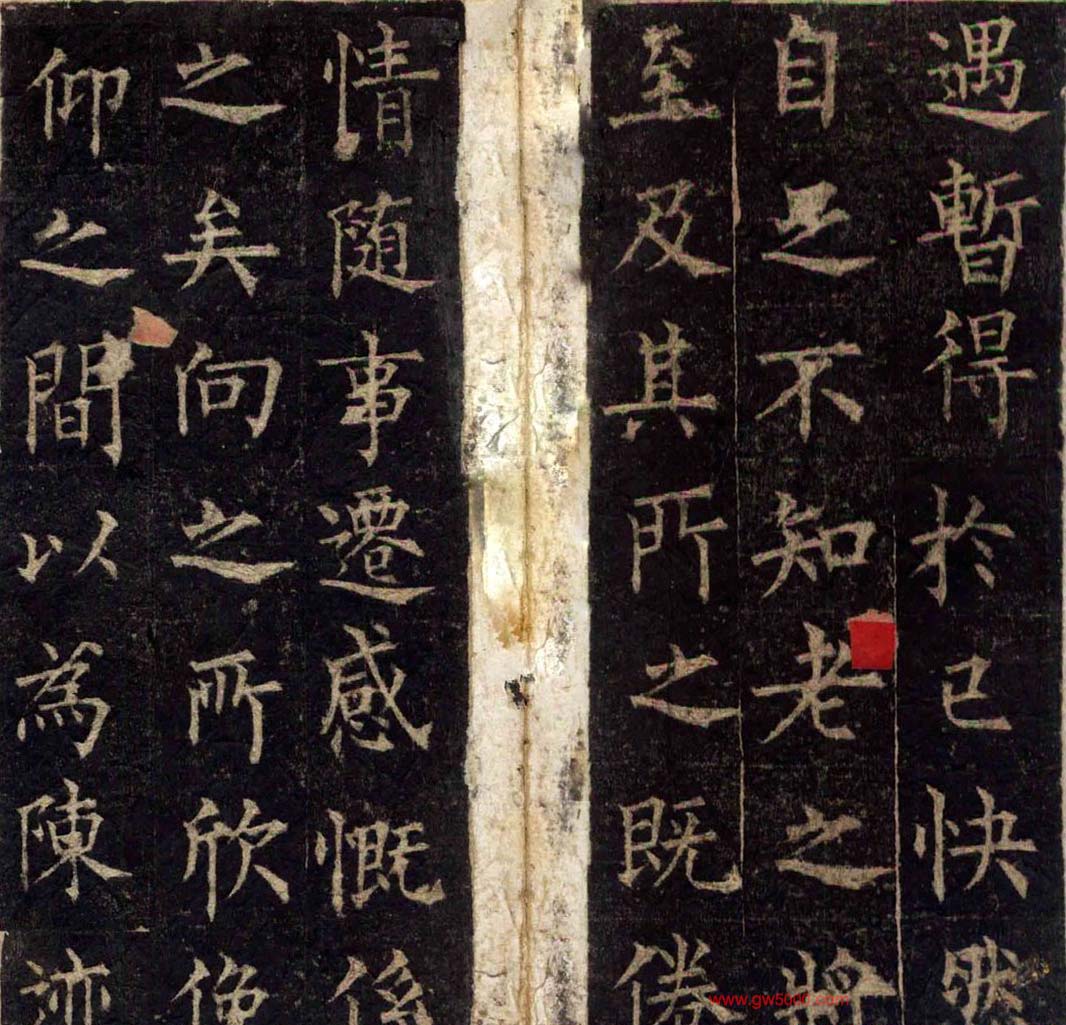 遇暫得於己快然
自足不知老之將
至及其所之既倦
情随事遷感慨係
之矣向之所欣俛
仰之間以為陳迹
www.gw5000.com